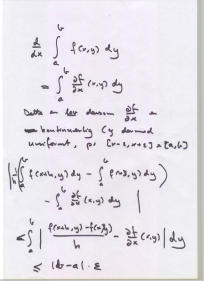 d/dx ∫_a^b f(x,y) dy
= ∫_a^b ∂f/∂x (x,y) dy
Detta är lov dersom ∂f/∂x er
kontinuerlig
uniformt, på [x-ε, x+ε] × [a,b]
| 1/h ( ∫_a^b f(x+h,y) dy - ∫_a^b f(x,y) dy )
- ∫_a^b ∂f/∂x (x,y) dy |
≤ ∫_a^b | (f(x+h,y) - f(x,y))/h - ∂f/∂x (x,y) | dy
≤ |b-a| · ε